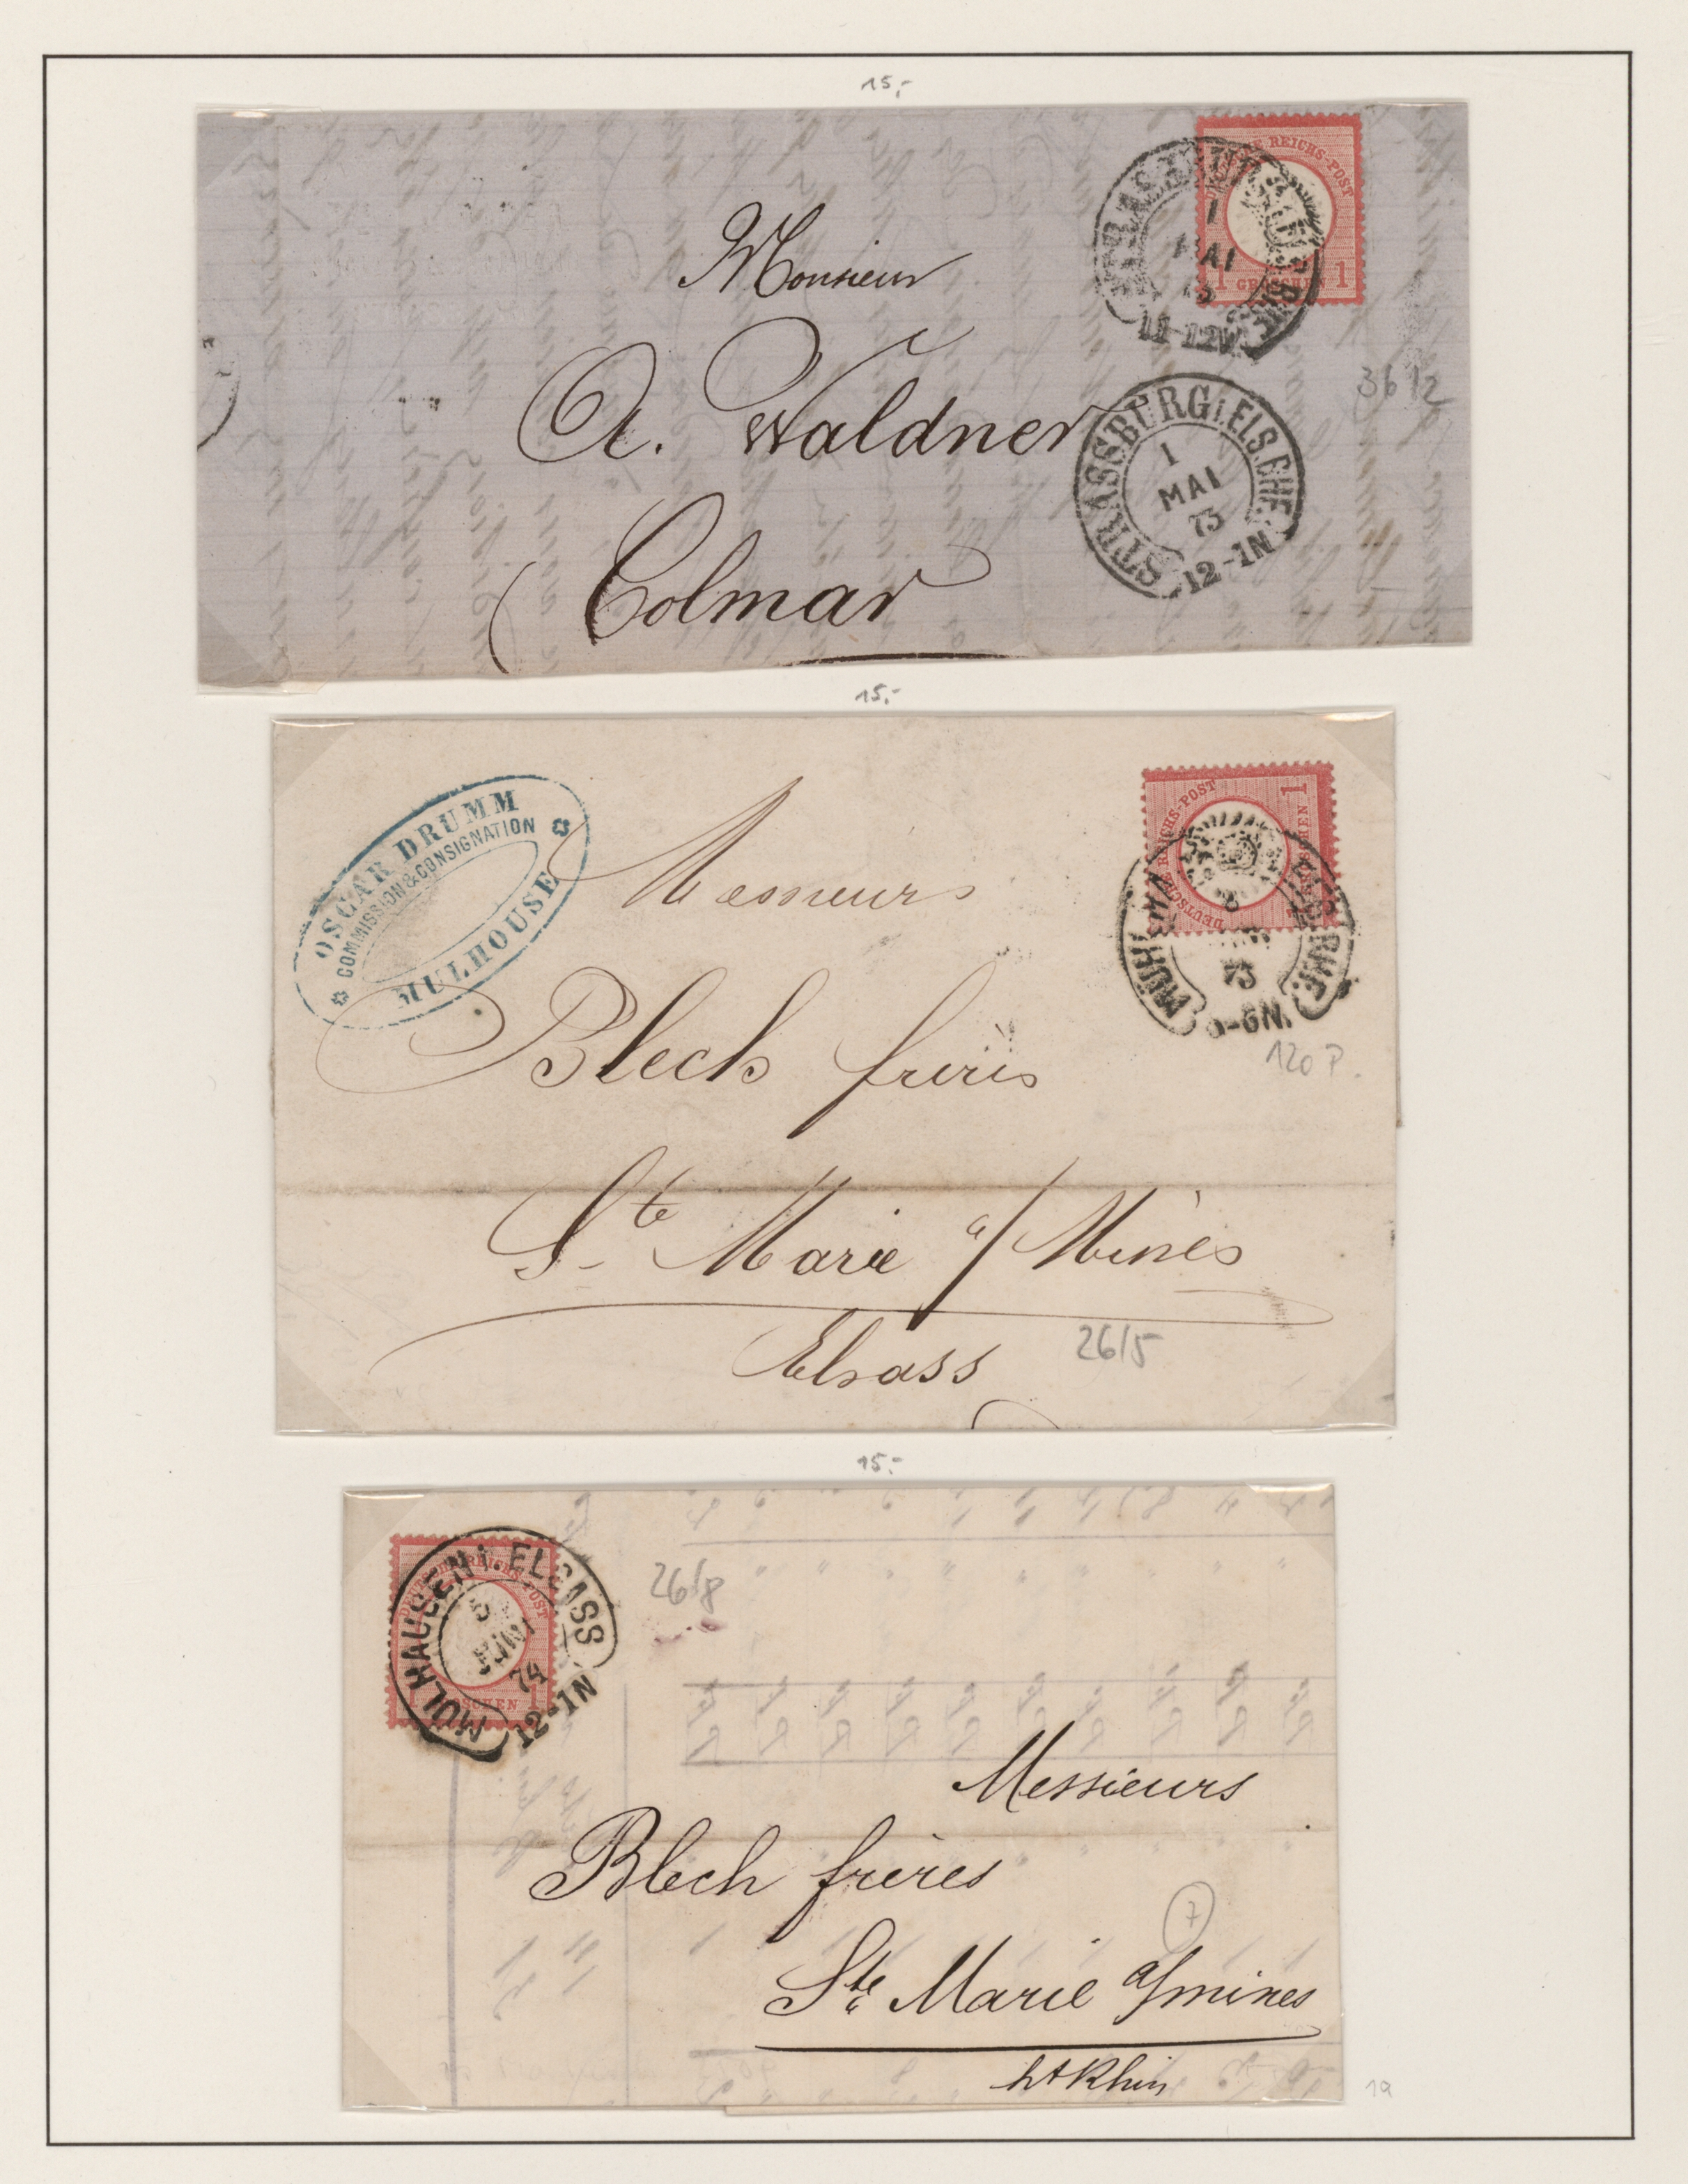 15,-
REICHS-POST
1 GROSCHEN 1
MAI
11-12V
Monsieur
A. Waldner
Colmar
STRASSBURG i. ELS. BHF.
1
MAI
73
12-1N
36 12
15,-
OSCAR DRUMM
COMMISSION & CONSIGNATION
MULHOUSE
DEUTSCHE REICHS-POST
1
73
-6N.
120 P.
Messieurs
Blech frères
Ste Marie a/ Mines
Elsass
26/5
15,-
DEUTSCHE REICHS-POST
MÜLHAUSEN i. ELSASS
5
JUNI
74
12-1N
26/8
Messieurs
Blech frères
7
Ste Marie a/mines
ht Rhin
19